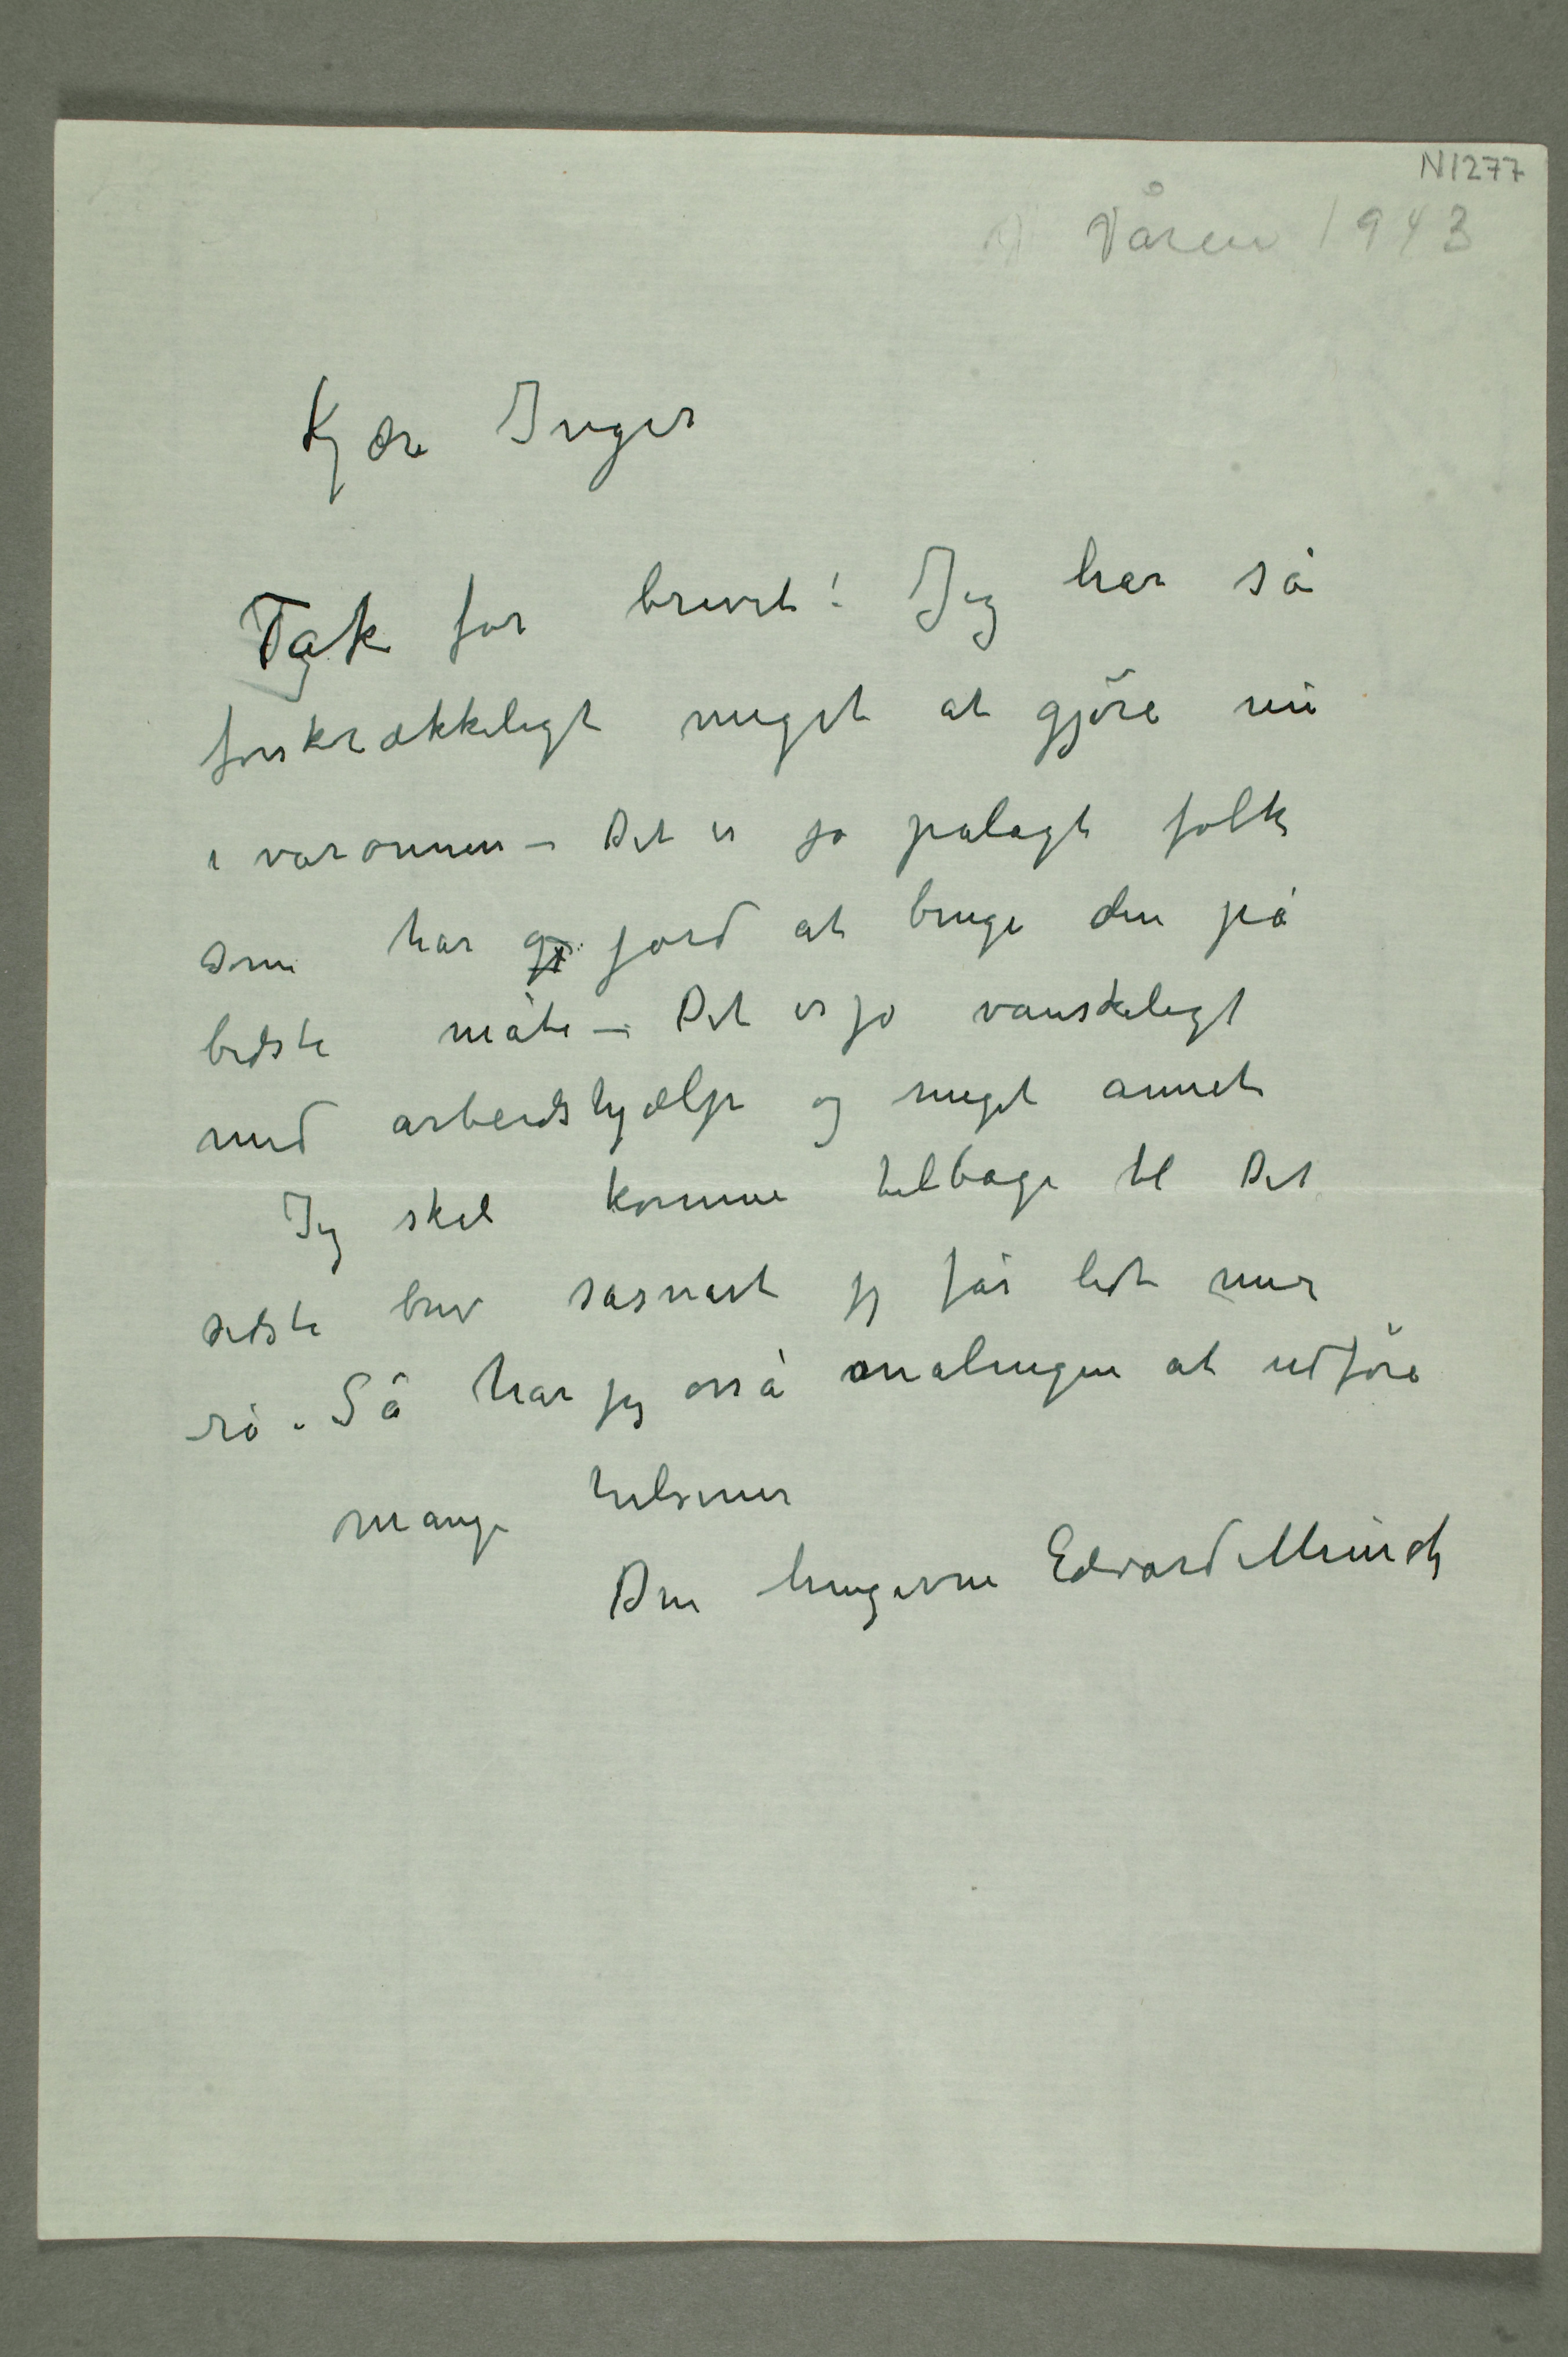 N1277
Våren 1943
Kjære Inger
Tak for brevet! Jeg har så
forskrækkeligt meget at gjöre nu
i våronnen – Det er jo pålagt folk
som har jord at bruge den på
bedste måte – Det er jo vanskeligt
med arbeidshjælp og meget annet
Jeg skal komme tilbage til Dit
sidste brev såsnart jeg får lidt mer
ro. Så har jeg osså malingen at udföre
mange hilsener
Din hengivne Edvard Munch